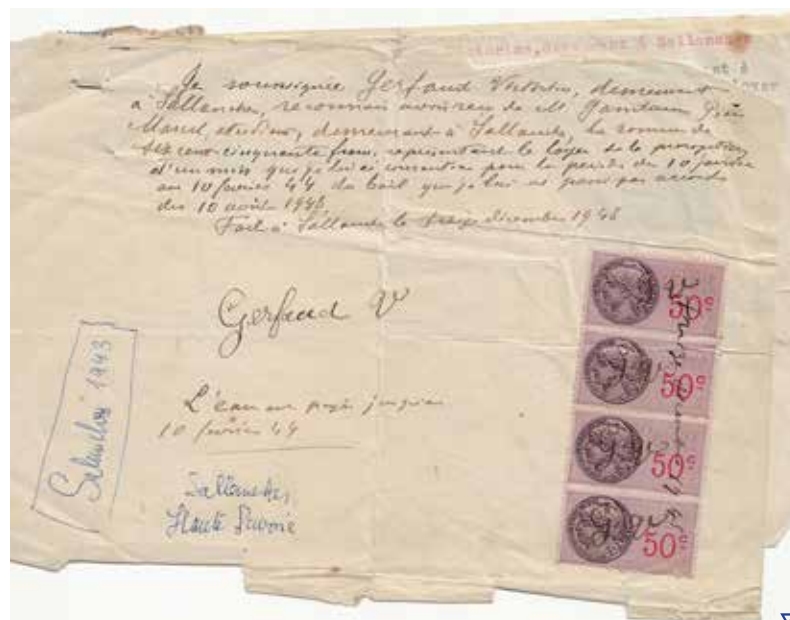 Je soussignée Gerfaud Victorin, demeurant
à Sallanches, reconnais avoir reçu de M.
Marcel, étudiant, demeurant à Sallanches, la somme de
six cent cinquante francs, représentant le loyer de la
d'un mois que je lui ai consentie pour la période du 10 janvier
au 10 février 44 du bail que je lui ai passé par accords
du 10 août 1943.
Fait à Sallanches le treize décembre 1943
Gerfaud V
L'eau est payée jusqu'au
10 février 44
Sallanches,
Haute Savoie
1943
50c
50c
50c
50c